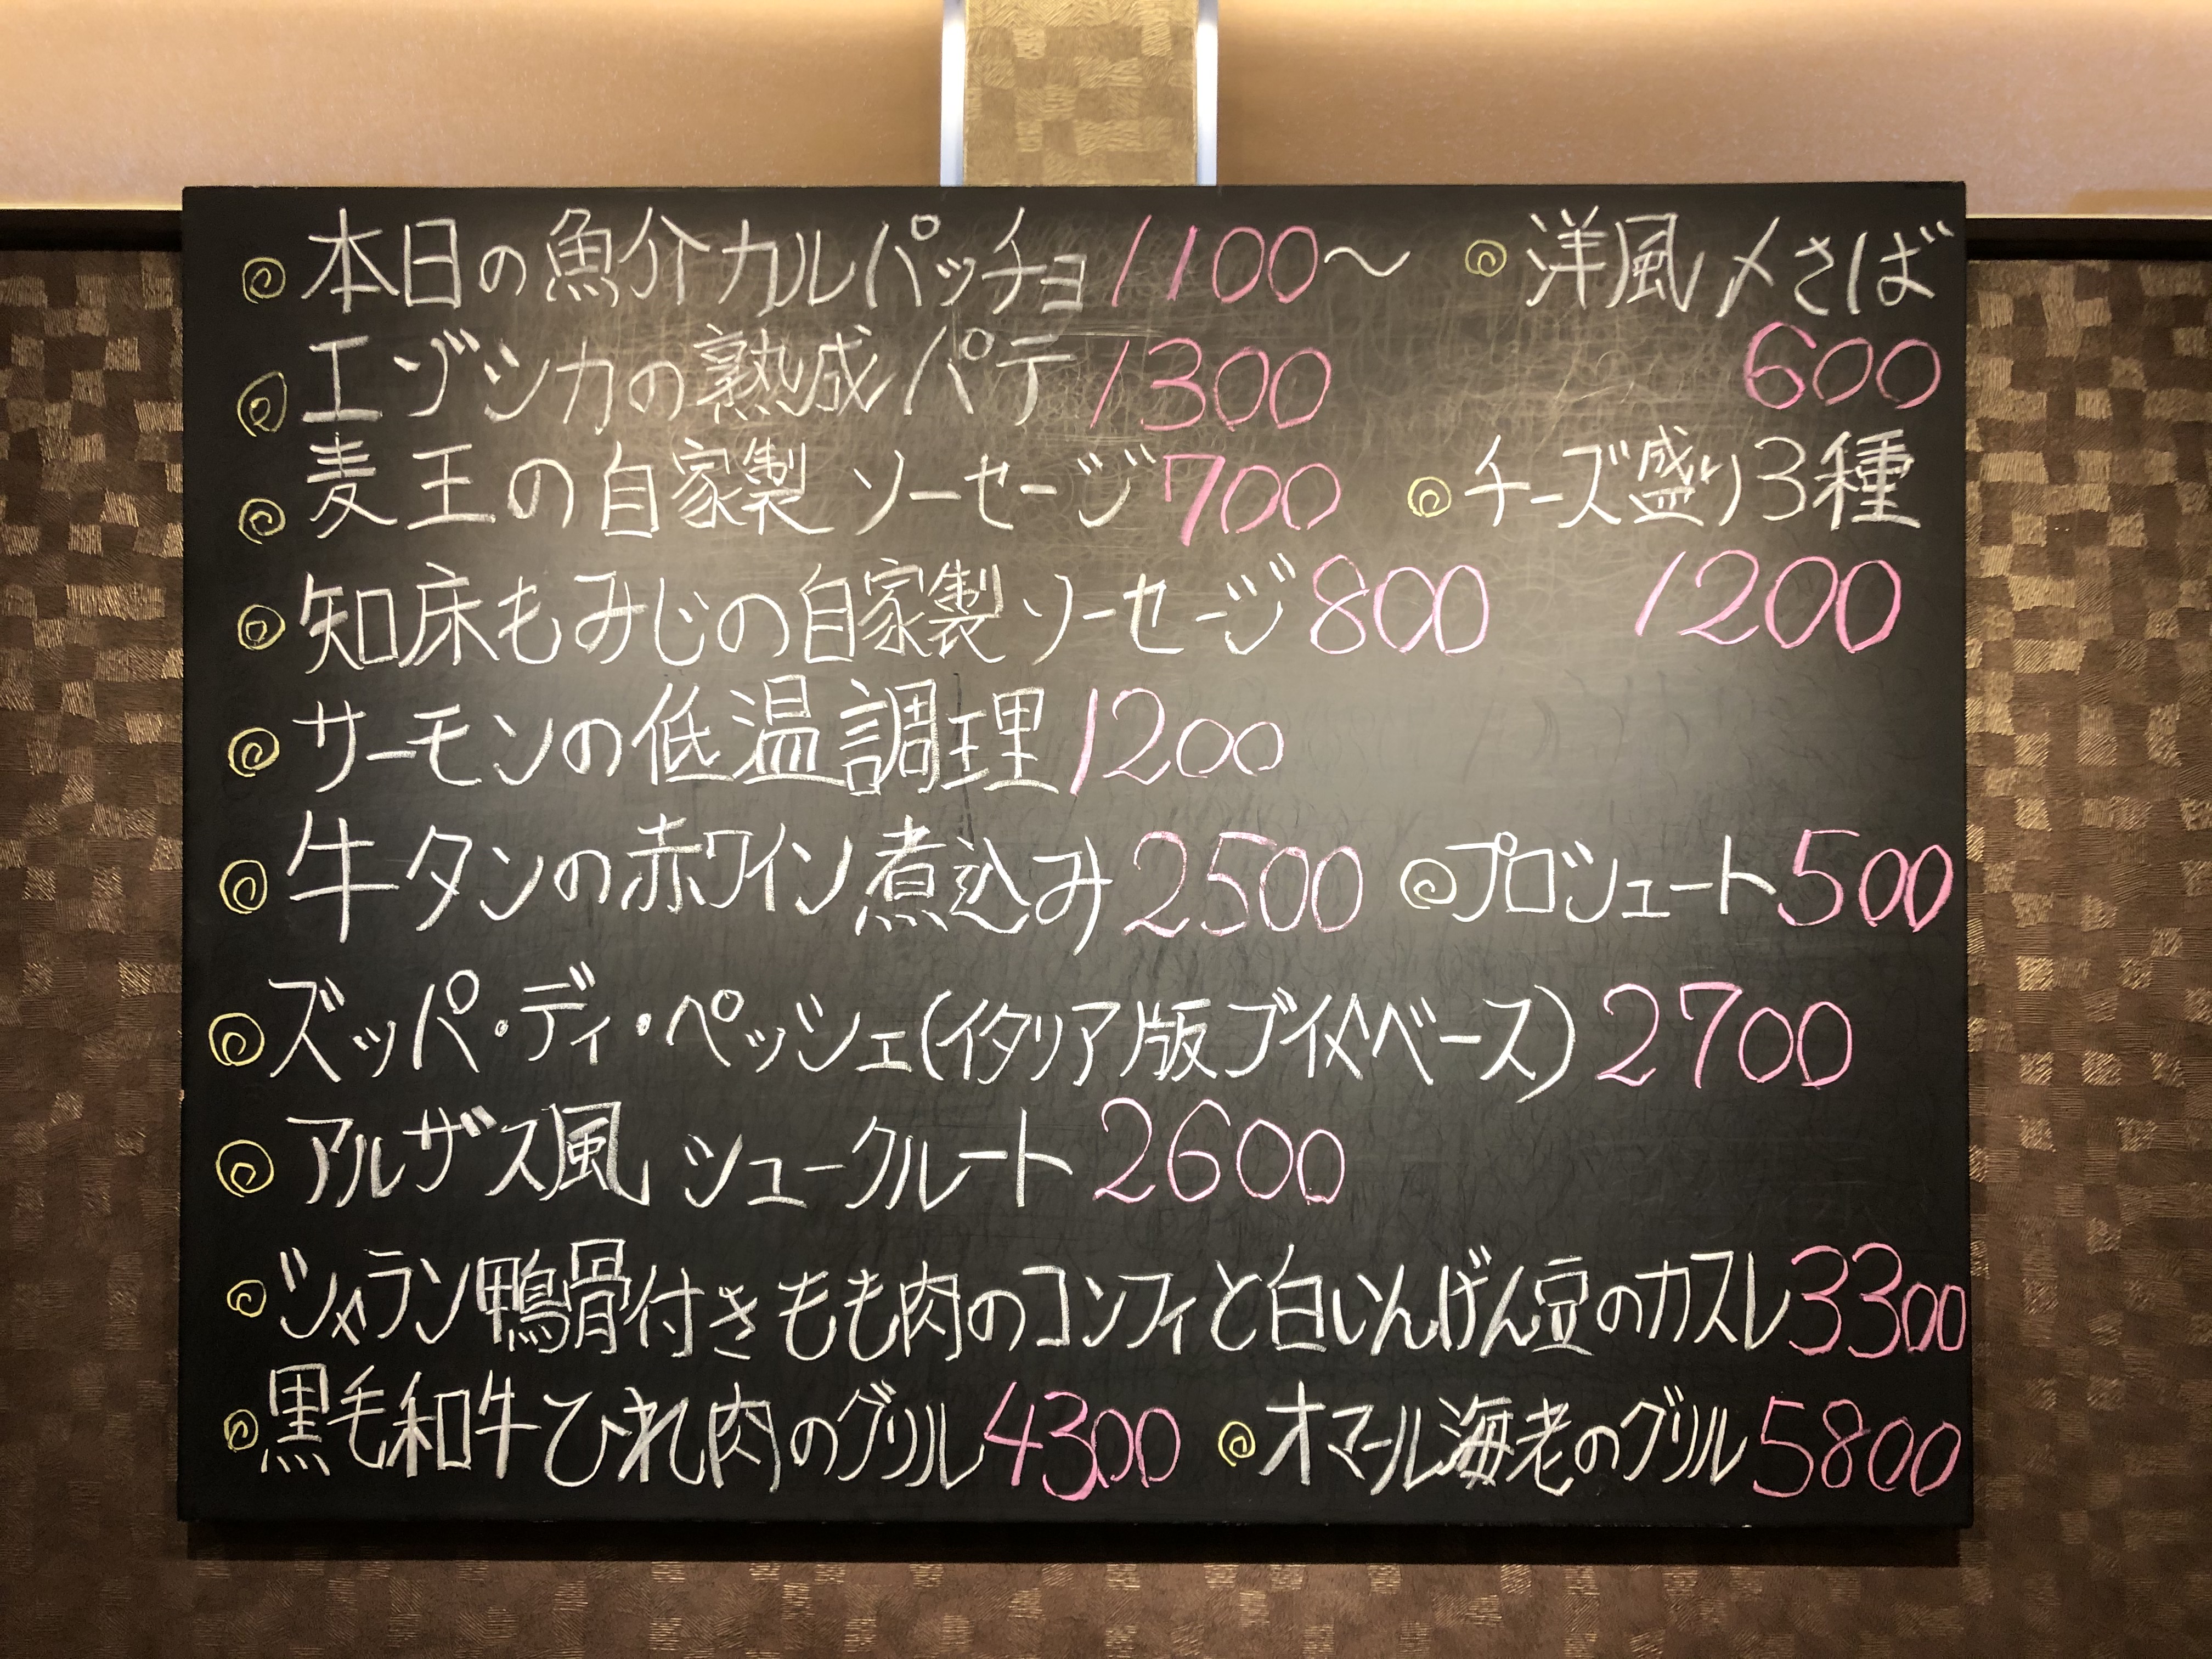 本日の魚介カルパッチョ 1100〜 洋風〆さば
エゾシカの熟成パテ 1300 600
麦王の自家製ソーセージ 700 チーズ盛り3種
知床もみじの自家製ソーセージ 800 1200
サーモンの低温調理 1200
牛タンの赤ワイン煮込み 2500 プロシュート 500
ズッパ・ディ・ペッシェ(イタリア版ブイヤベース) 2700
アルザス風 シュークルート 2600
シャラン鴨骨付きもも肉のコンフィと白いんげん豆のカスレ 3300
黒毛和牛ひれ肉のグリル 4300 オマール海老のグリル 5800